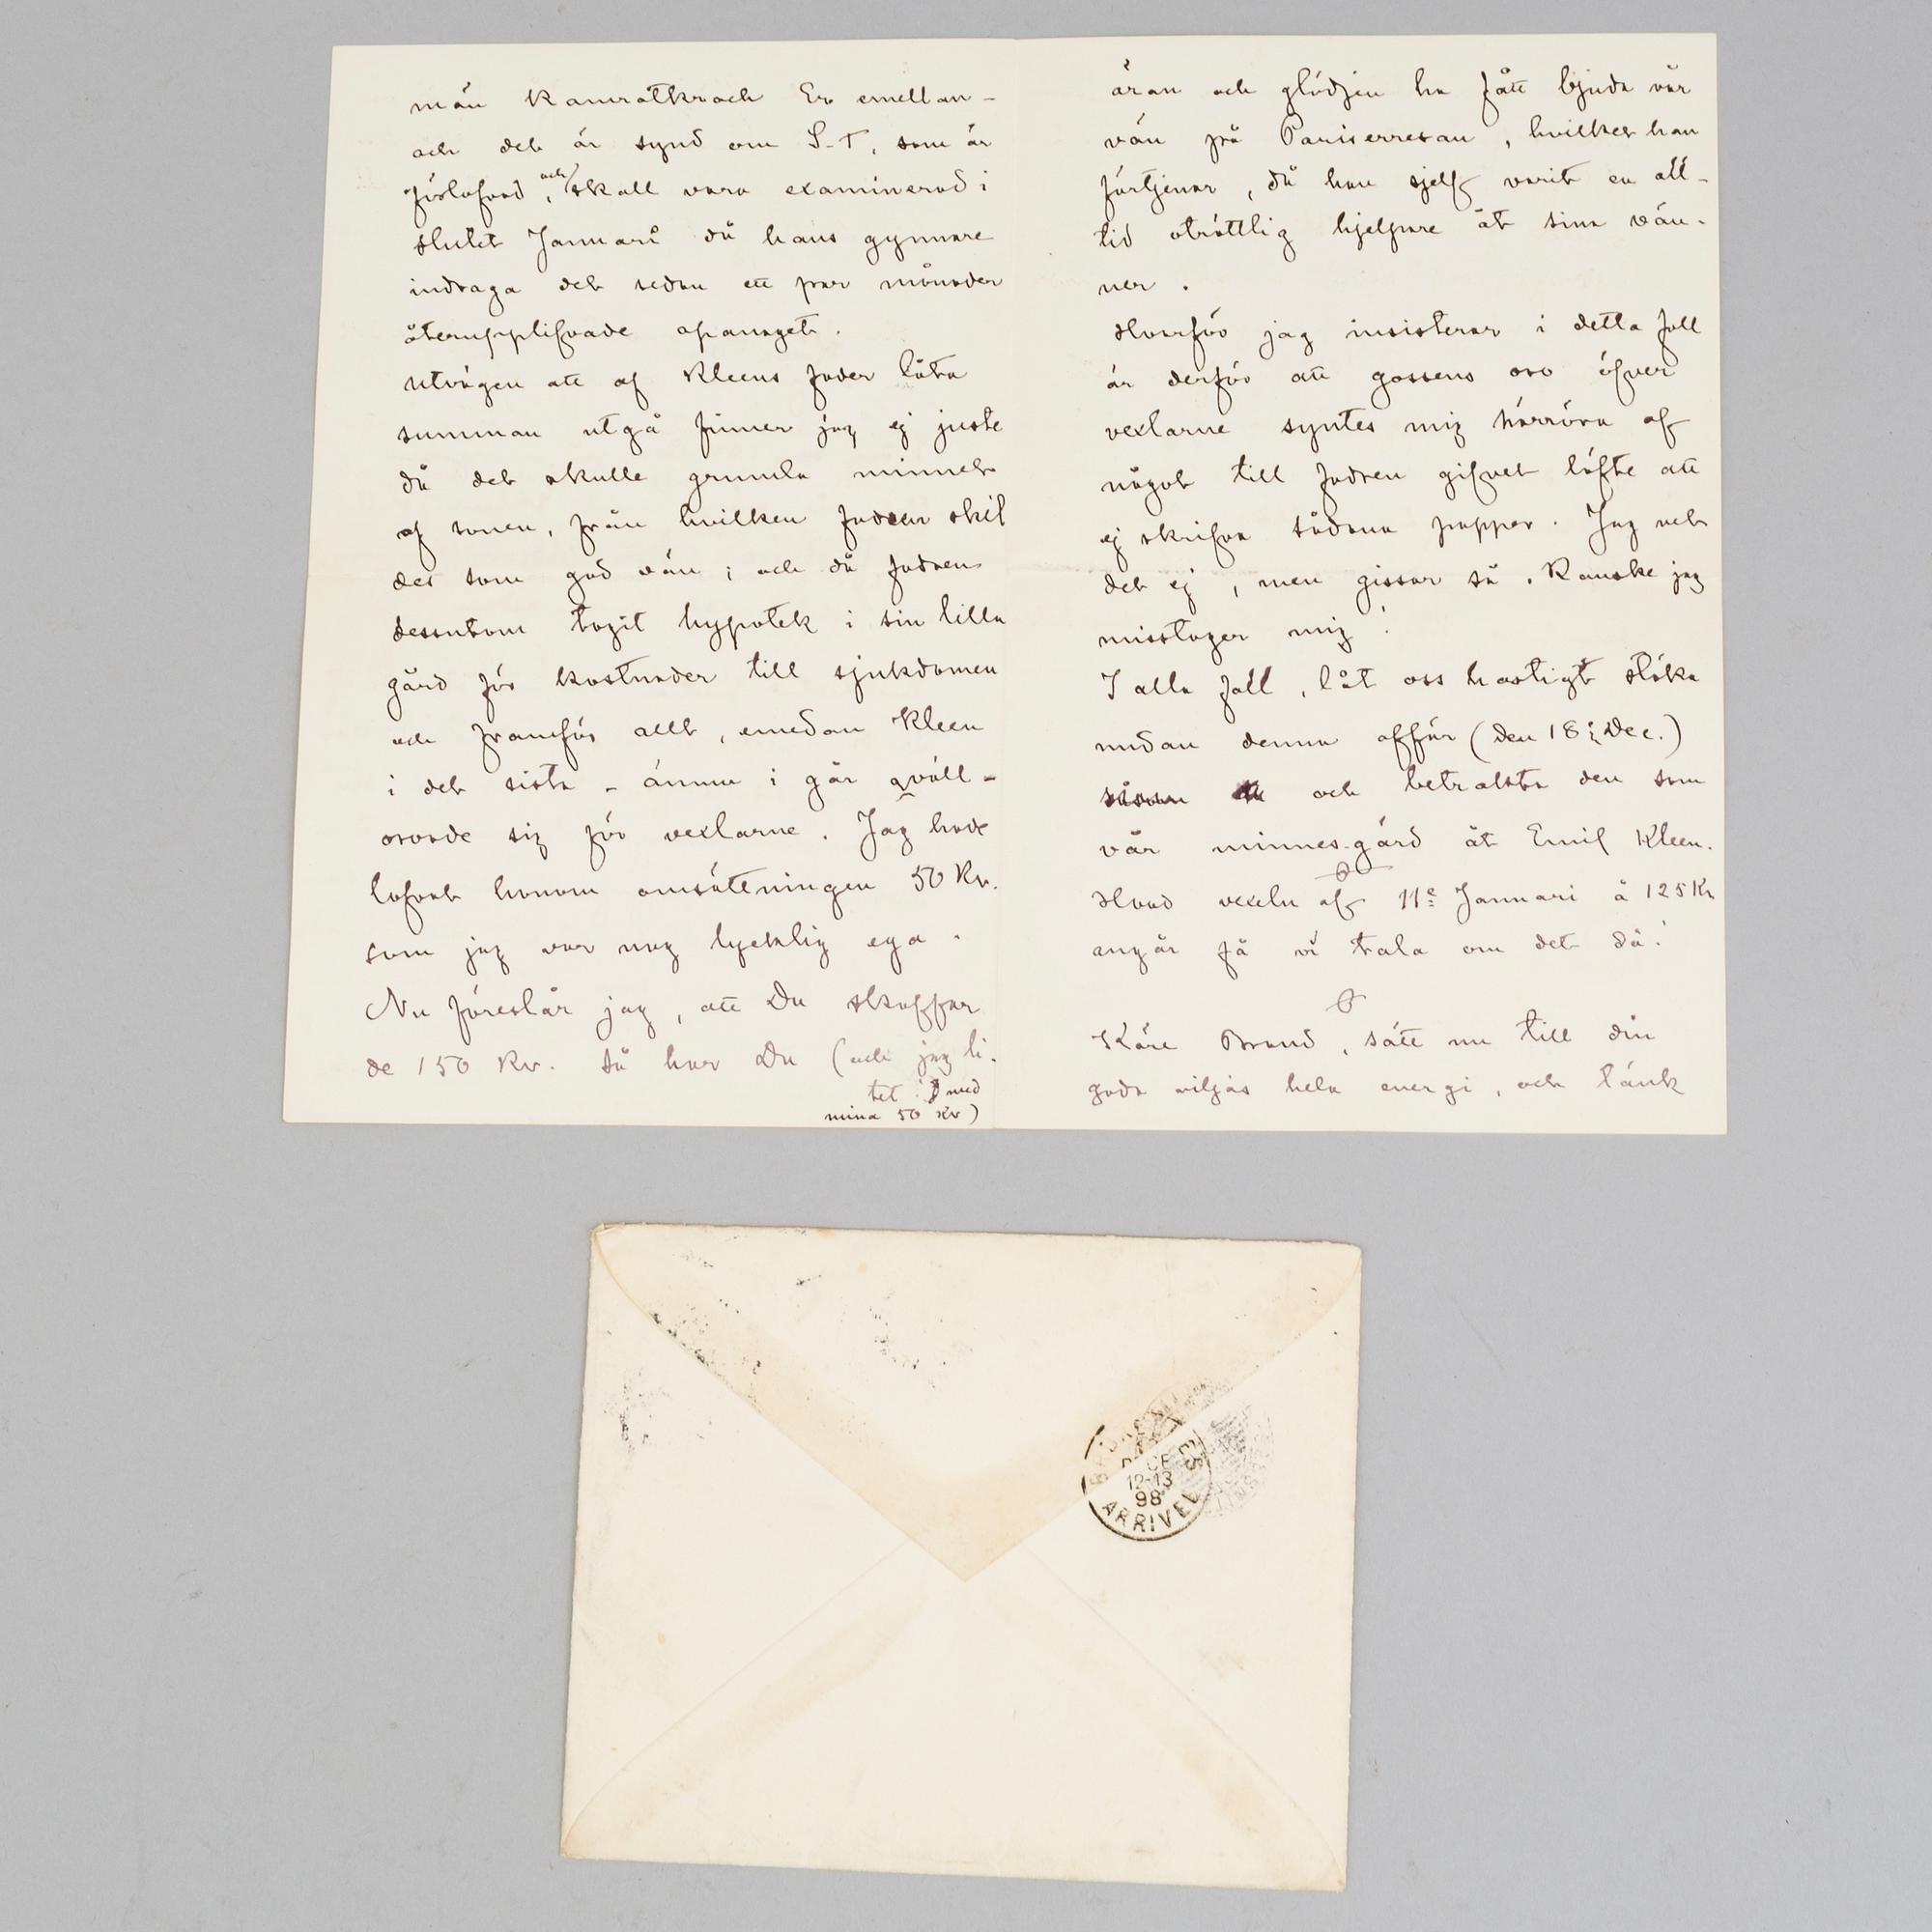 män Kamratkrach Er emellan -
och det är synd om S-T, som är
förlofvad, och skall vara examinerad i
slutet Januari då hans gynnare
indraga det sedan ett par månader
återupplifvade apanaget.
Utvägen att af Kleens fader låta
summan utgå finner jag ej juste
då det skulle grumla minnet
af sonen, från hvilken fadern skil
des som god vän; och då fadren
dessutom tagit hypotek i sin lilla
gård för kostnader till sjukdomen
och framför allt, emedan Kleen
i det sista - ännu i går qväll -
oroade sig för vexlarne. Jag hade
lofvat honom omsättningen 50 Kr.
som jag var nog lycklig ega.
Nu föreslår jag, att Du skaffar
de 150 Kr. Så har Du (och jag li-
tet i med
mina 50 Kr)
äran och glädjen ha fått bjuda vår
vän på Pariserresan, hvilket han
förtjenar, då han sjelf varit en all-
tid otröttlig hjelpare åt sina vän-
ner.
Hvarför jag insisterar i detta fall
är derför att gossens oro öfver
vexlarne syntes mig härröra af
något till fadren gifvet löfte att
ej skrifva sådana papper. Jag vet
det ej, men gissar så. Kanske jag
misstager mig!
I alla fall, låt oss hastigt stöka
undan denna affär (den 18: Dec.)
och betrakta den som
vår minnes-gärd åt Emil Kleen.
Hvad vexeln af 11e Januari à 125 Kr
angår få vi tala om det då!
Käre Brand, sätt nu till din
goda viljas hela energi, och tänk
12-13
98
ARRIVEE